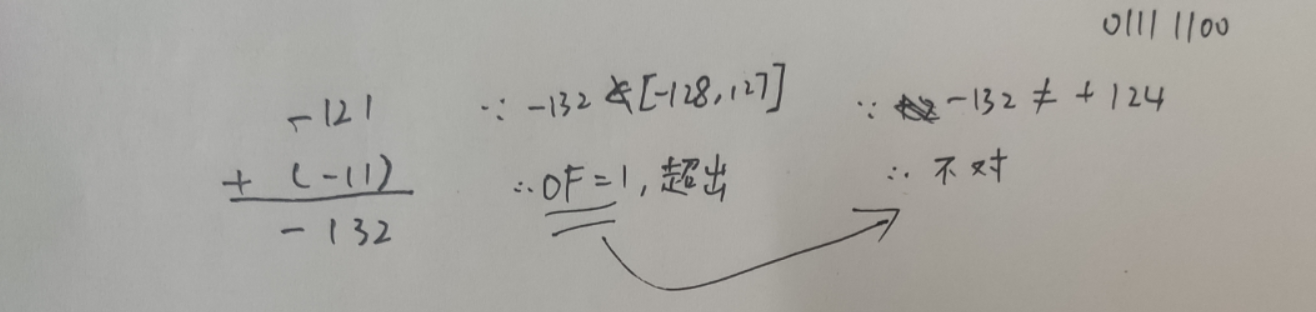 01111100
-121
+ (-11)
-132
∵ -132 ∉ [-128,127]
∴ OF=1, 超出
∵ -132 ≠ +124
∴ 不对